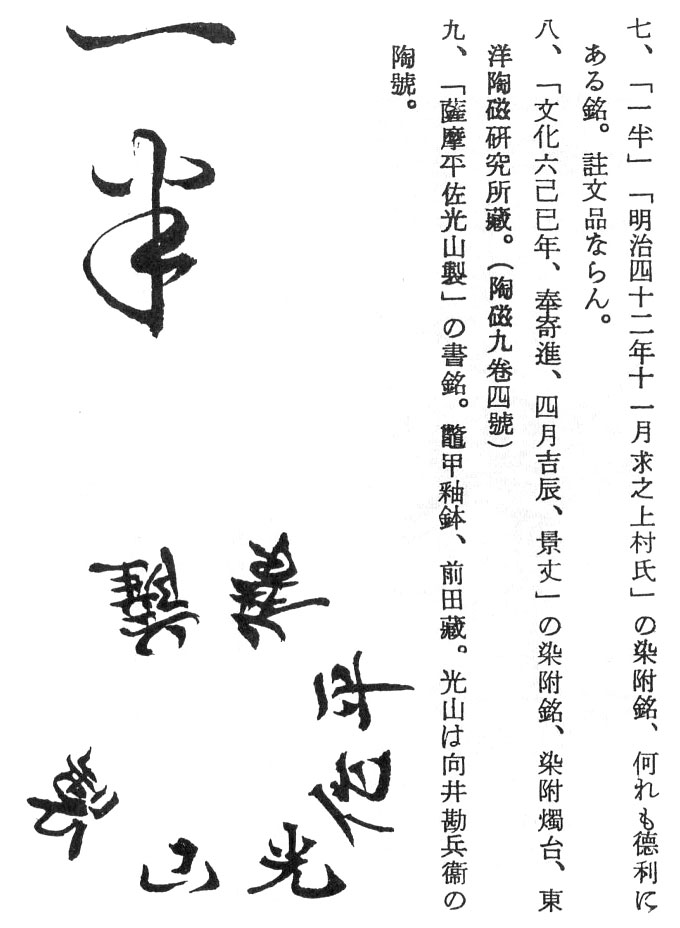 七、「一半」「明治四十二年十一月求之上村氏」の染附銘、何れも德利に
ある銘。註文品ならん。
八、「文化六己巳年、奉寄進、四月吉辰、景丈」の染附銘、染附燭台、東
洋陶磁硏究所藏。（陶磁九卷四號）
九、「薩摩平佐光山製」の書銘。鼈甲釉鉢、前田藏。光山は向井勘兵衞の
陶號。
一半
薩摩平佐光山製